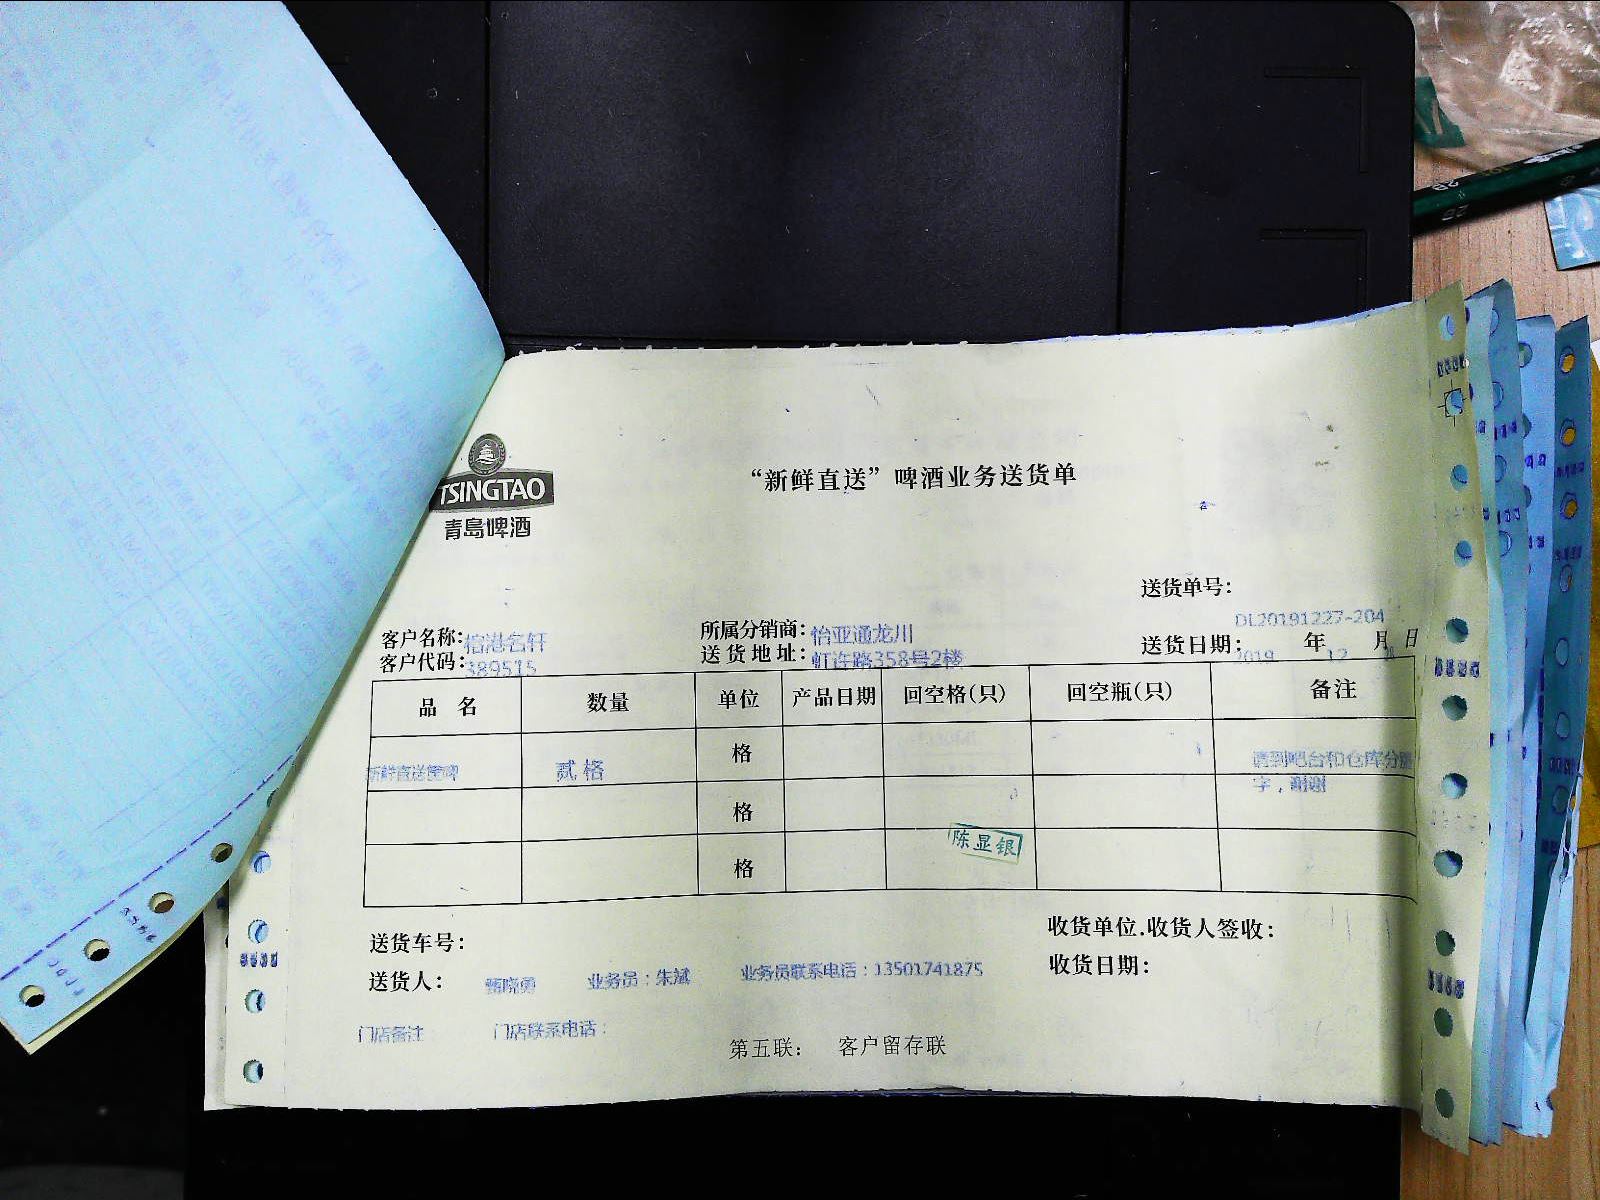 TSINGTAO
青島啤酒
“新鲜直送”啤酒业务送货单
送货单号：
DL20191227-204
客户名称：榕港名轩 所属分销商：怡亚通龙川 送货日期： 年 月 日
2019 12 28
客户代码：389515 送货地址：虹许路358号2楼
品 名 数量 单位 产品日期 回空格(只) 回空瓶(只) 备注
新鲜直送 贰格 格 请到吧台和仓库分别
字，谢谢
格
陈显银
格
送货车号： 收货单位.收货人签收：
送货人： 甄晓勇 业务员：朱斌 业务员联系电话：13501741875 收货日期：
门店备注 门店联系电话：
第五联： 客户留存联
2B